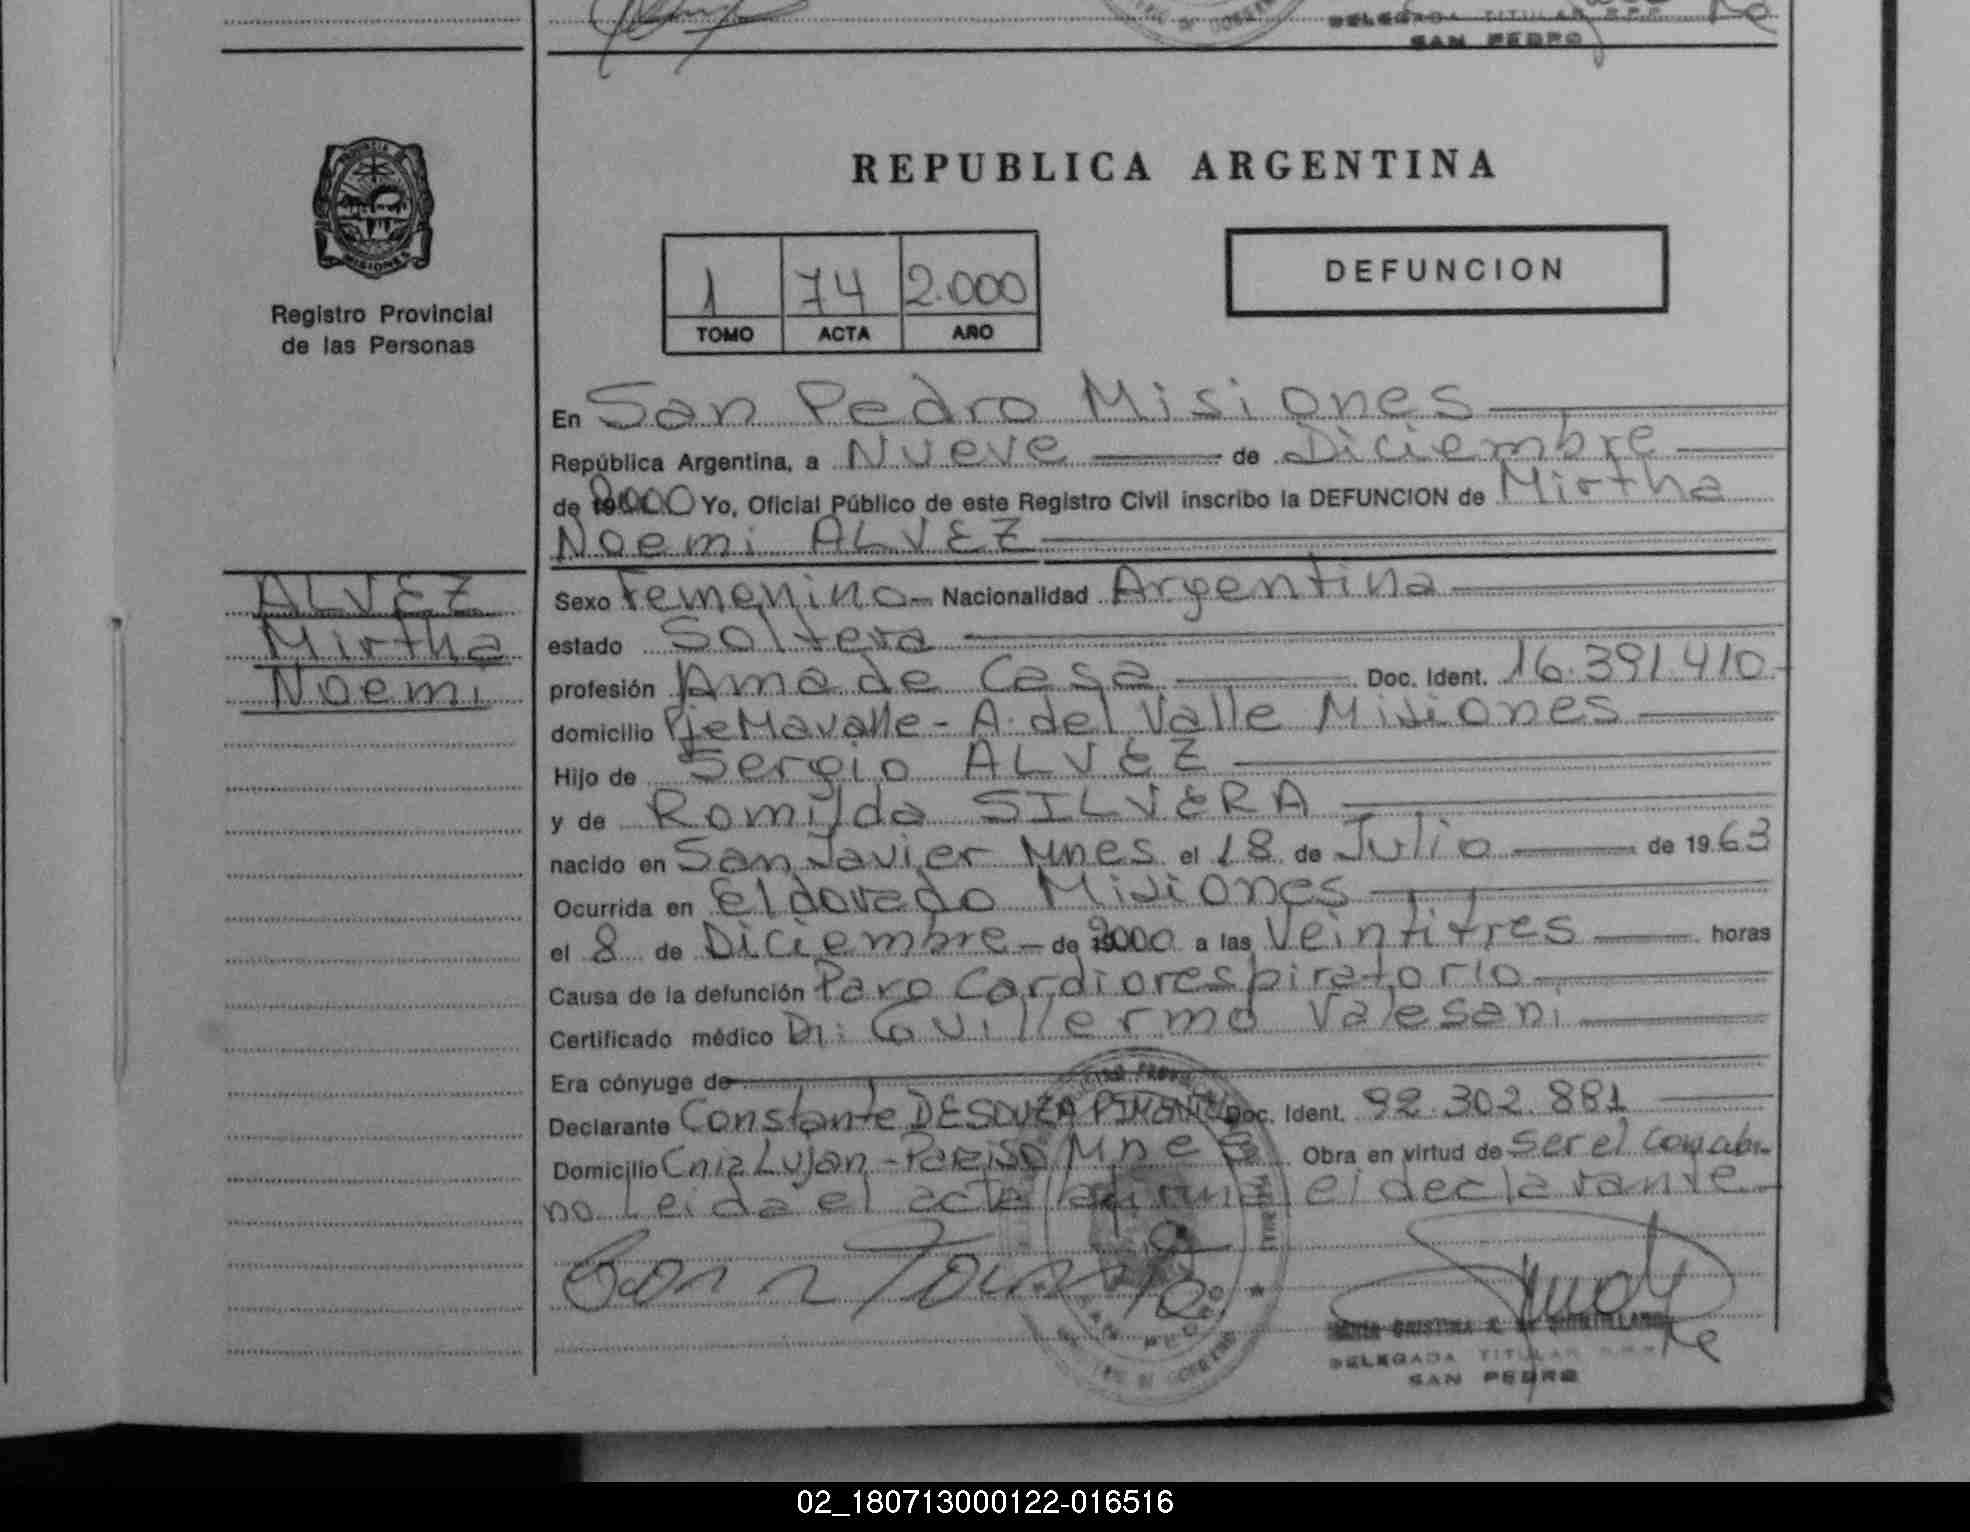 DELEGADA TITULAR R.P.P.
SAN PEDRO
PROVINCIA DE
MISIONES
Registro Provincial
de las Personas
REPUBLICA ARGENTINA
1 74 2.000
TOMO ACTA AÑO
DEFUNCION
En San Pedro Misiones
República Argentina, a Nueve de Diciembre
de 2000 Yo, Oficial Público de este Registro Civil inscribo la DEFUNCION de Mirtha
Noemi ALVEZ
ALVEZ
Mirtha
Noemi
Sexo Femenino Nacionalidad Argentina
estado Soltera
profesión Ama de Casa Doc. Ident. 16.391.410
domicilio Pje Mavalle - A. del Valle Misiones
Hijo de Sergio ALVEZ
y de Romilda SILVERA
nacido en San Javier Mnes el 18 de Julio de 1963
Ocurrida en Eldorado Misiones
el 8 de Diciembre de 2000 a las Veintitres horas
Causa de la defunción Paro Cardiorespiratorio
Certificado médico Dr: Guillermo Valesani
Era cónyuge de
Declarante Constante DESOUZA Doc. Ident. 92.302.881
Domicilio Cnia Lujan - Mnes Obra en virtud de ser el concubi-
no Leida el acta la firma el declarante
MARIA CRISTINA
DELEGADA TITULAR
SAN PEDRO
SAN PEDRO
02_180713000122-016516